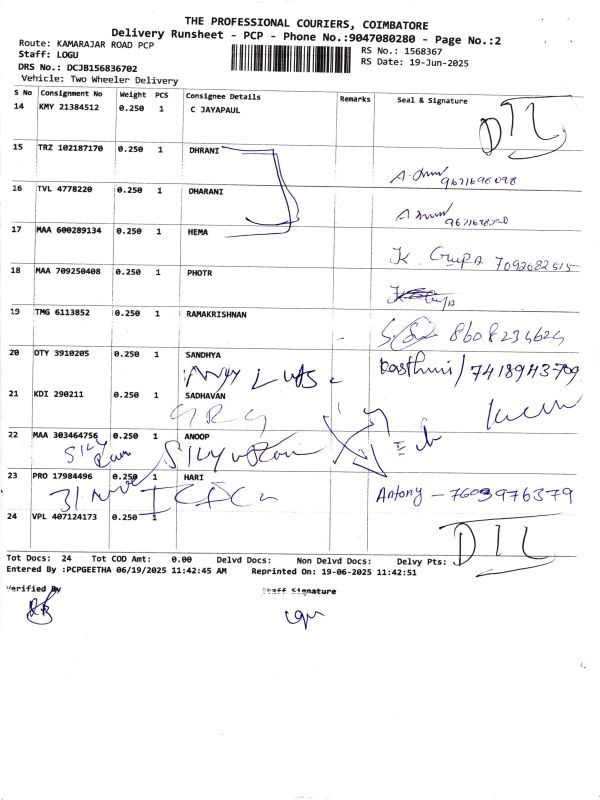 THE PROFESSIONAL COURIERS, COIMBATORE
Delivery Runsheet - PCP - Phone No.:9047080280 - Page No.:2
Route: KAMARAJAR ROAD PCP
Staff: LOGU
RS No.: 1568367
DRS No.: DCJB156836702
RS Date: 19-Jun-2025
Vehicle: Two Wheeler Delivery
S No Consignment No Weight PCS Consignee Details Remarks Seal & Signature
14 KMY 21384512 0.250 1 C JAYAPAUL
15 TRZ 102187170 0.250 1 DHRANI
16 TVL 4778220 0.250 1 DHARANI
17 MAA 600289134 0.250 1 HEMA
K. 7092682515
18 MAA 709250408 0.250 1 PHOTR
19 TMG 6113852 0.250 1 RAMAKRISHNAN
8608234624
20 OTY 3910205 0.250 1 SANDHYA
Kasthuri / 7418943709
21 KDI 290211 0.250 1 SADHAVAN
22 MAA 303464756 0.250 1 ANOOP
23 PRO 17984496 0.250 1 HARI
Antony - 7603976379
24 VPL 407124173 0.250 1
Tot Docs: 24 Tot COD Amt: 0.00 Delvd Docs: Non Delvd Docs: Delvy Pts:
Entered By :PCPGEETHA 06/19/2025 11:42:45 AM Reprinted On: 19-06-2025 11:42:51
Verified By Staff Signature